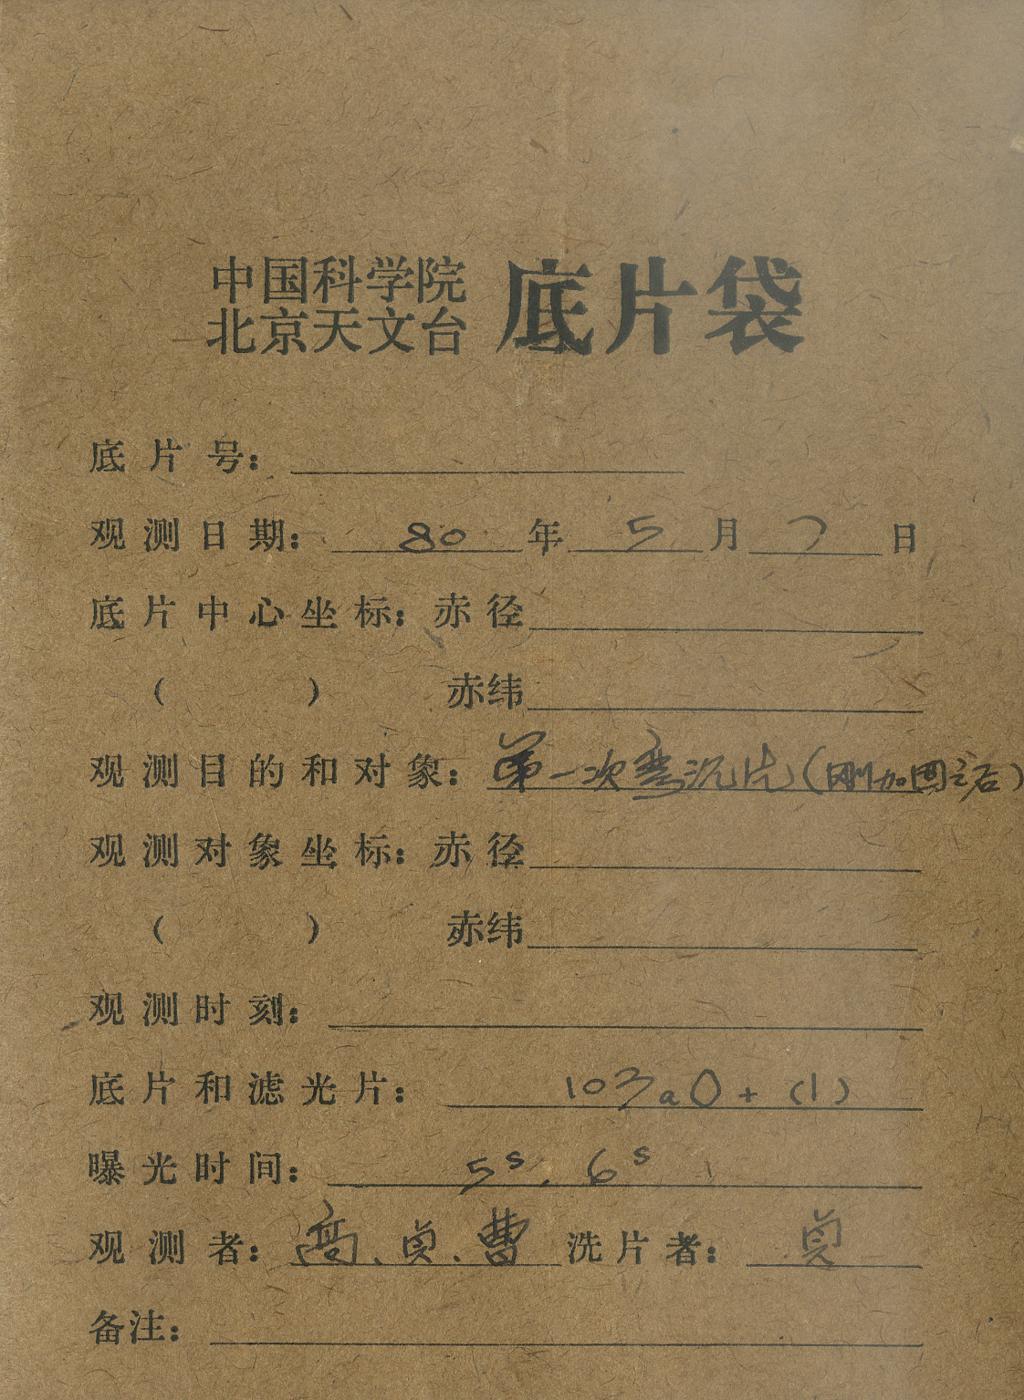 中国科学院
北京天文台 底片袋
底片号：
观测日期： 80 年 5 月 7 日
底片中心坐标：赤径
（ ） 赤纬
观测目的和对象：第一次弯沉片（刚加固之后）
观测对象坐标：赤径
（ ） 赤纬
观测时刻：
底片和滤光片： 103aO + (1)
曝光时间： 5s. 6s
观测者：高、贞、曹 洗片者：贞
备注：